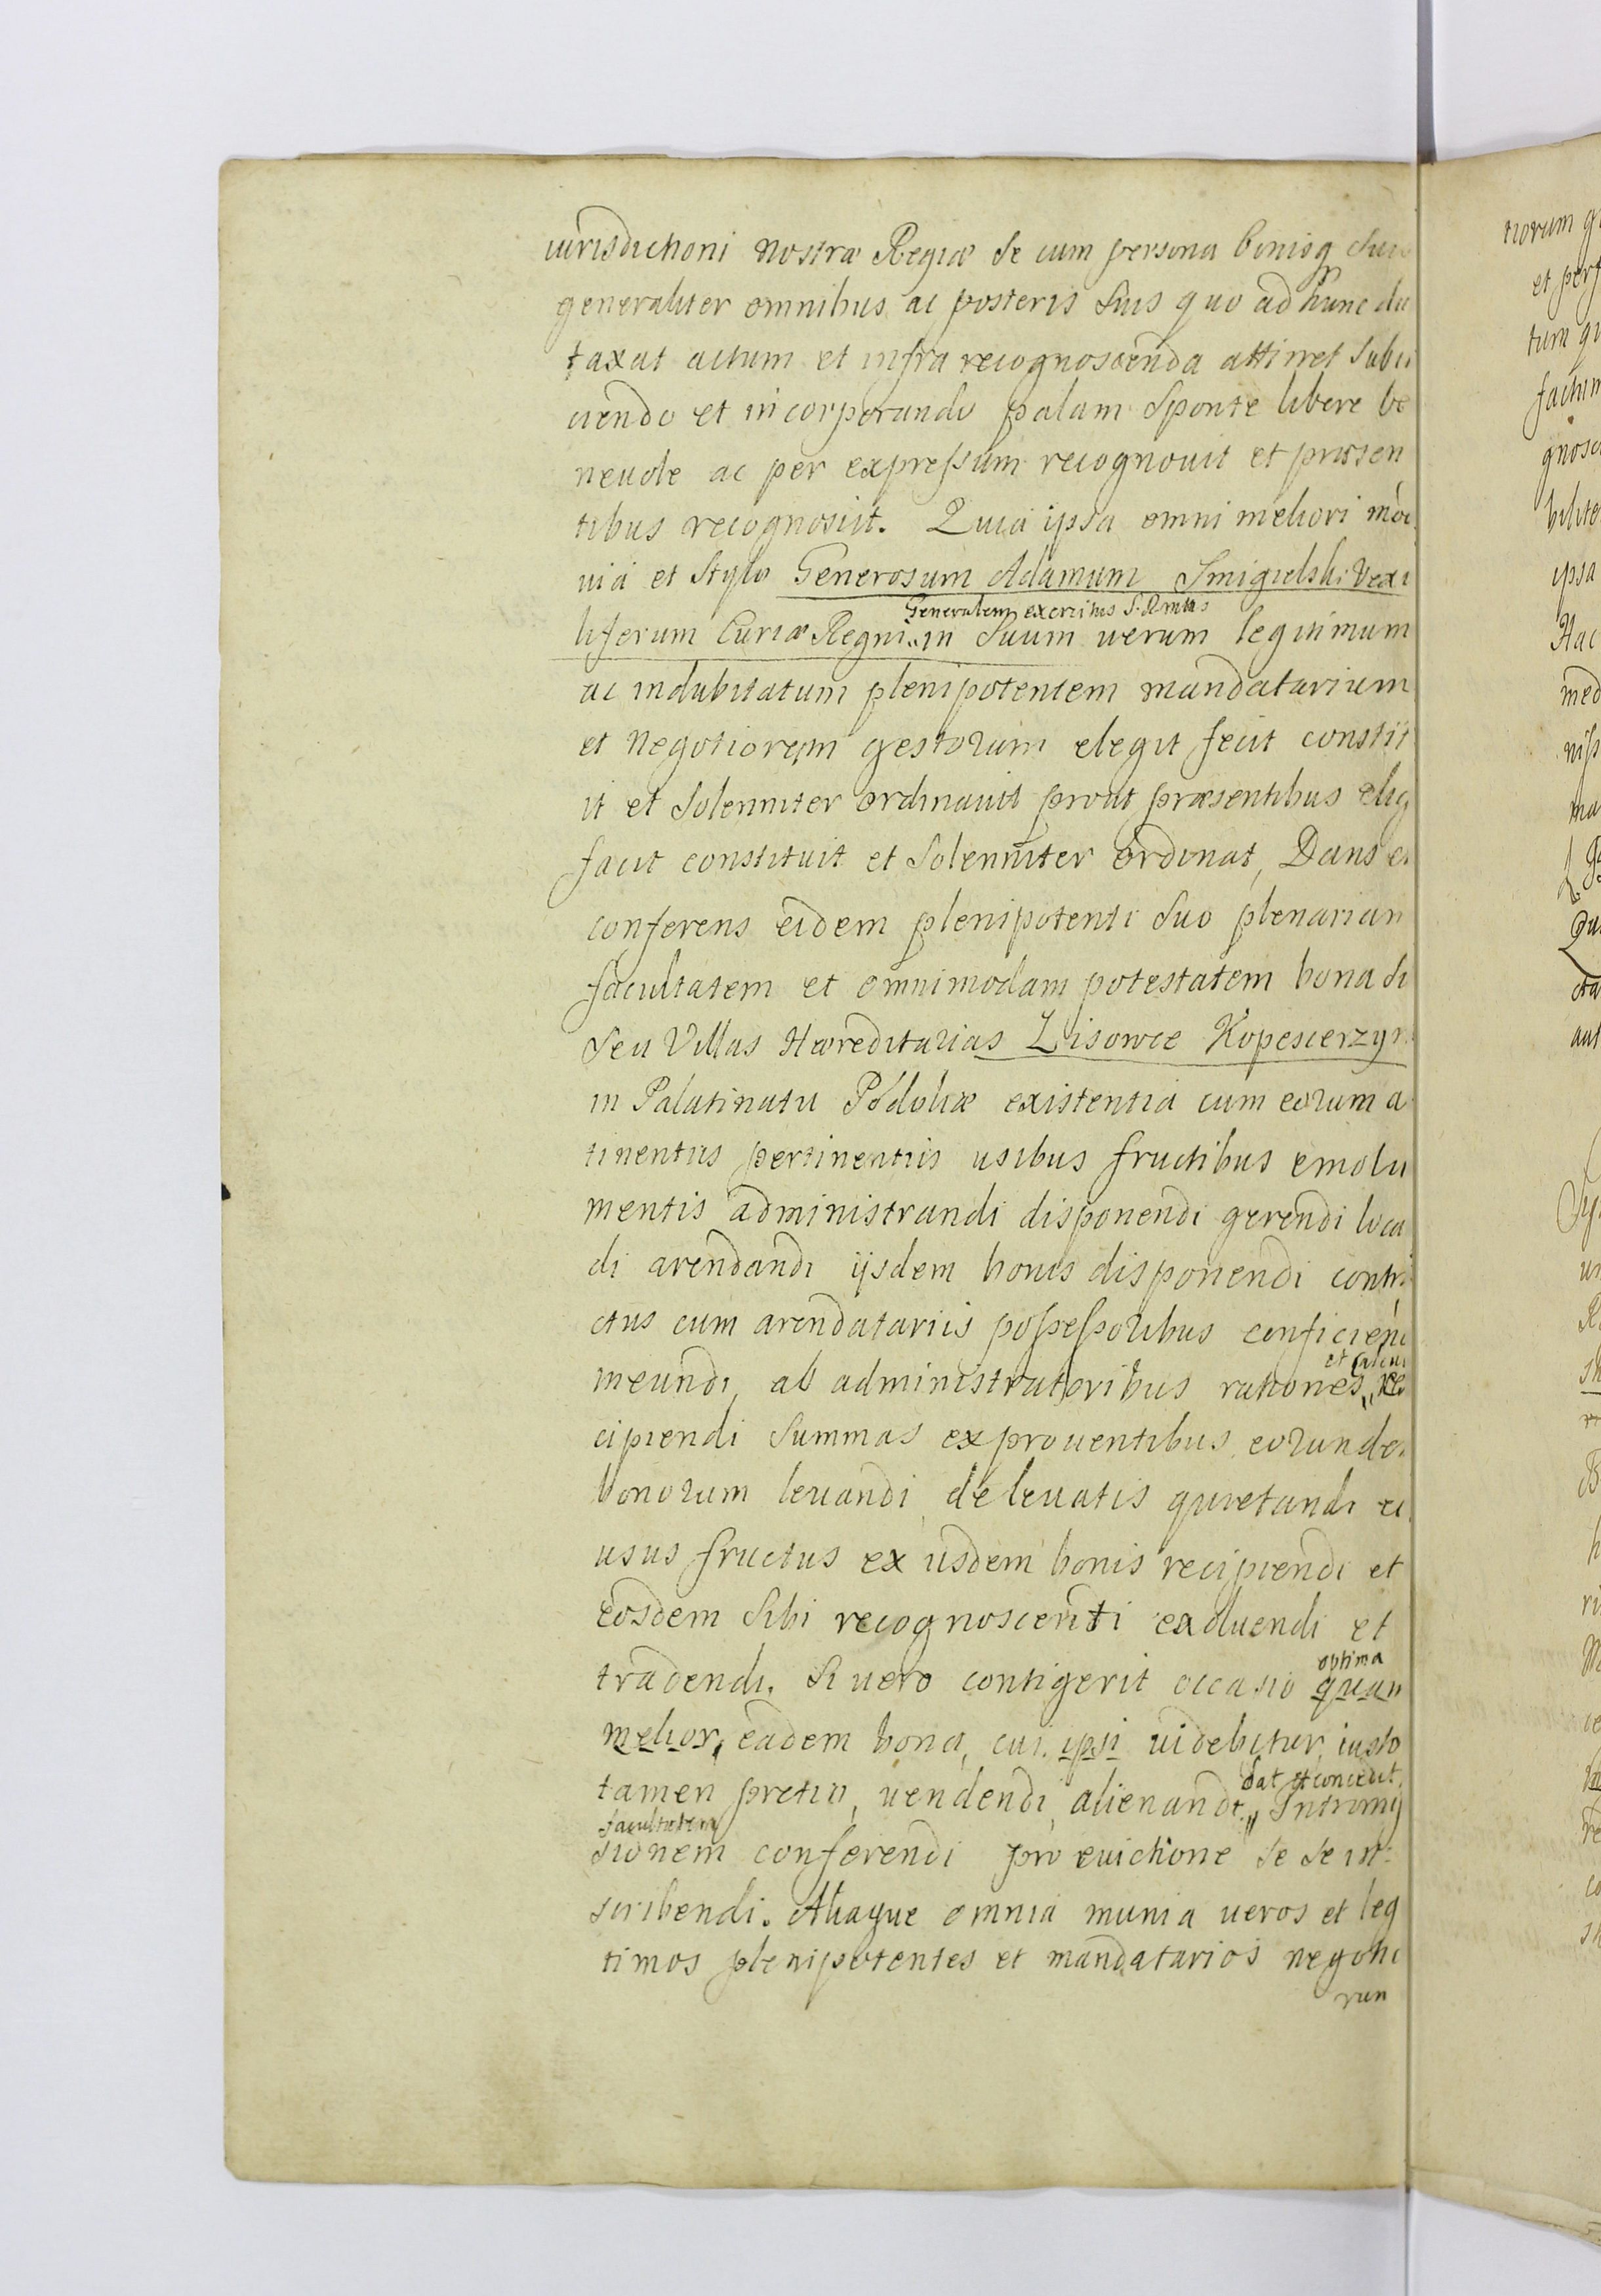 iurisdictioni nostræ Regiæ se cum persona bonisq suis
generaliter omnibus ac posteris suis quo ad hunc du
taxat actum et infra recognoscenda attinet subii
ciendo et incorporando palam sponte libere be
neuole ac per expressum recognouit et præsen
tibus recognoscit. Quia ipsa omni meliori mo
uia et stylo Generosum Adamum Smigielski Vexi
Generalem exercitus S. Rmtis
liferum Curiæ Regni in suum uerum legitimum
ac indubitatum plenipotentem mandatarium
et negotiorum gestorum elegit fecit constit
it et solenniter ordinauit prout præsentibus elig
facit constituit et solenniter ordinat, Dans e
conferens eidem plenipotenti suo plenariam
facultatem et omnimodam potestatem bona s
seu Villas Hæreditarias Lisowce Kopescierzyn
in Palatinatu Podoliæ existentia cum eorum a
tinentiis pertinentiis usibus fructibus emolu
mentis administrandi disponendi gerendi loca
di arendandi ijsdem bonis disponendi contra
ctus cum arendatariis possessoribus conficien
et calcul
ineundi, ab administratoribus rationes re
cipiendi summas ex prouentibus eorunde
bonorum leuandi de leuatis quietandi e
usus fructus ex iisdem bonis recipiendi et
eosdem sibi recognoscenti exoluendi et
optima
tradendi. Si uero contigerit occasio quan
melior, eadem bona, cui ipsi uidebitur iusto
dat et concedit
tamen pretio, uendendi alienandi Intromij
facultatem
sionem conferendi pro euictione se se in
scribendi. Aliaque omnia munia ueros et leg
timos plenipotentes et mandatarios negotio
rum